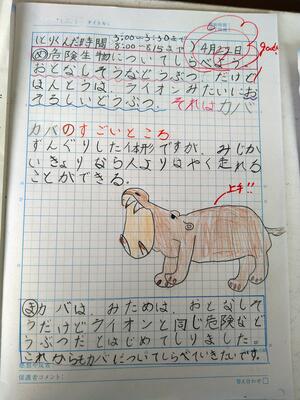 とりくんだ時間 3:00〜3:30まで
8:00〜8:15まで
4月27日
good!
め 危険生物についてしらべよう。
おとなしそうなどうぶつ。だけど
ほんとうは、ライオンみたいにお
そろしいどうぶつ。それはカバ
カバのすごいところ
ずんぐりした体形ですが、みじか
いきょりなら人よりはやく走れる
ことができる。
上手!!
ま カバは、みためは、おとなしそ
うだけどライオンと同じ危険など
うぶつだとはじめてしりました。
これからもカバについてしらべていきたいです。
保護者コメント:
答え合わせ